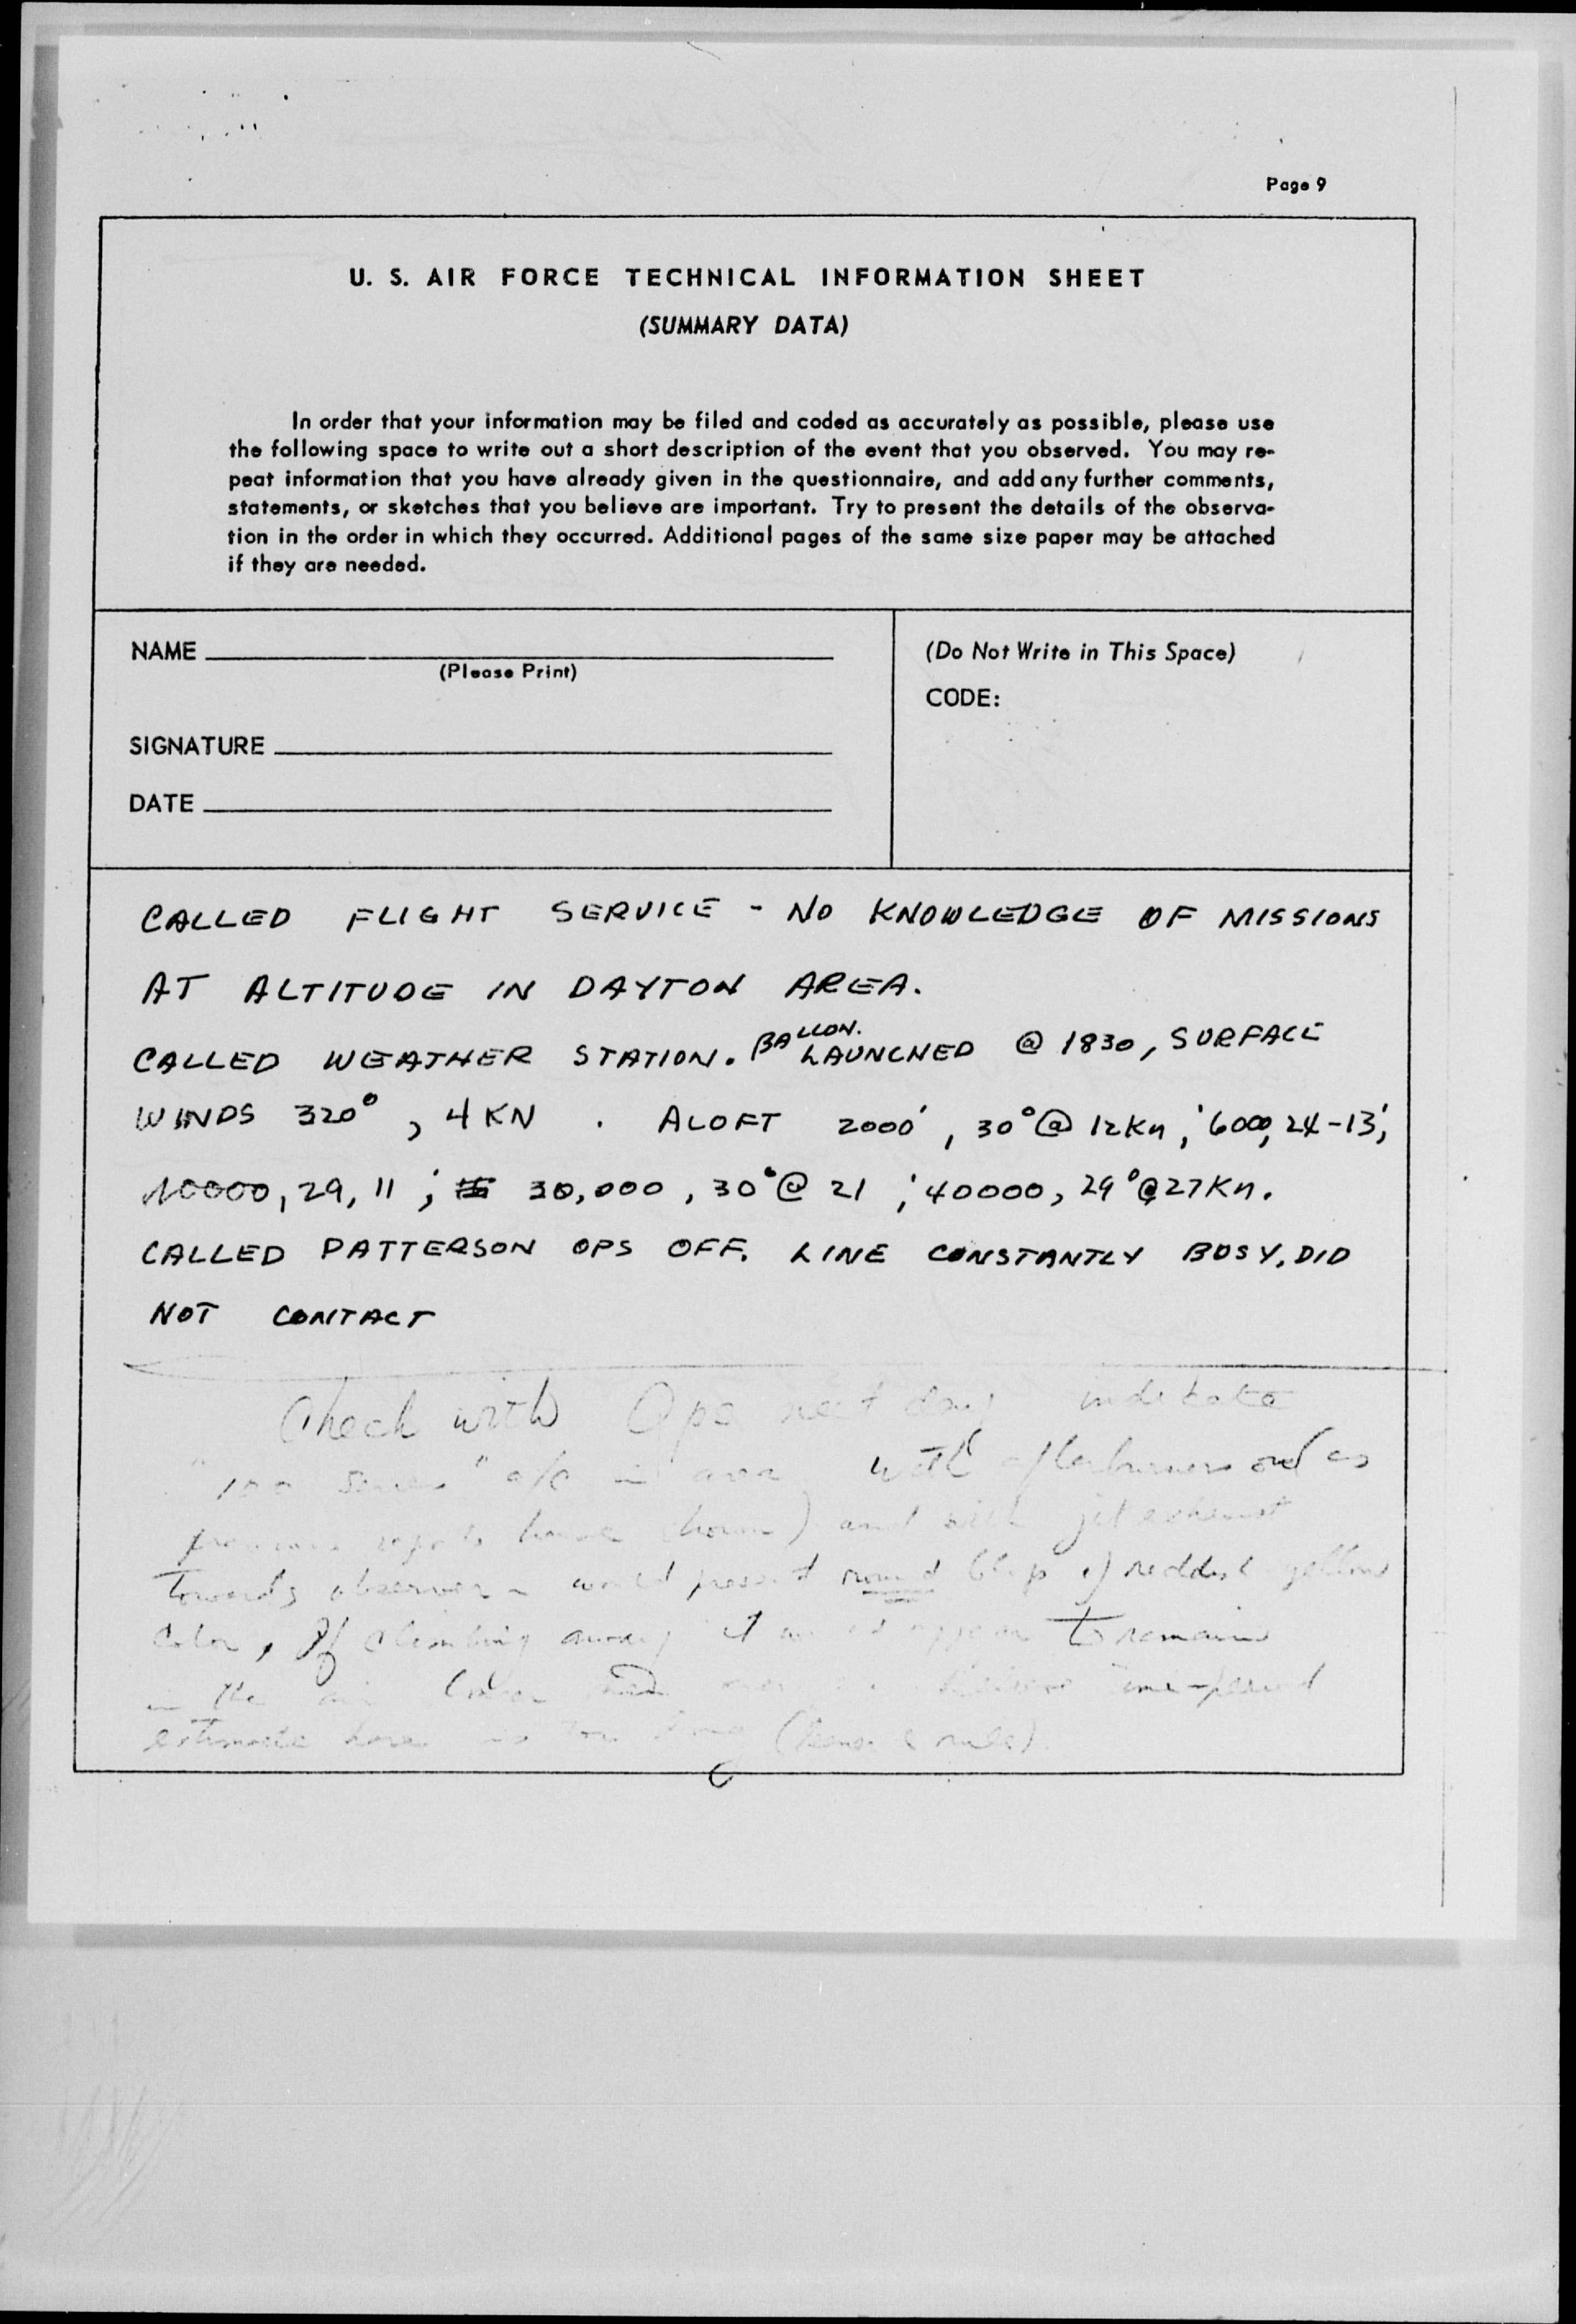 Page 9
U. S. AIR FORCE TECHNICAL INFORMATION SHEET
(SUMMARY DATA)
In order that your information may be filed and coded as accurately as possible, please use
the following space to write out a short description of the event that you observed. You may re-
peat information that you have already given in the questionnaire, and add any further comments,
statements, or sketches that you believe are important. Try to present the details of the observa-
tion in the order in which they occurred. Additional pages of the same size paper may be attached
if they are needed.
NAME
(Please Print)
SIGNATURE
DATE
(Do Not Write in This Space)
CODE:
CALLED FLIGHT SERVICE - NO KNOWLEDGE OF MISSIONS
AT ALTITUDE IN DAYTON AREA.
CALLED WEATHER STATION. BALLON. LAUNCHED @ 1830, SURFACE
WINDS 320°, 4 KN. ALOFT 2000', 30° @ 12 Kn; 6000, 24-13;
10000, 29, 11; 30,000, 30° @ 21; 40000, 29° @ 27 Kn.
CALLED PATTERSON OPS OFF. LINE CONSTANTLY BUSY, DID
NOT CONTACT
Check with Ops next day indicate
"100 series" a/c in area with afterburners and as
previous reports have shown) and with jet exhaust
towards observer would present round blip of reddish yellow
color, If climbing away it would appear to remain
in the air time-period
estimate here is too long